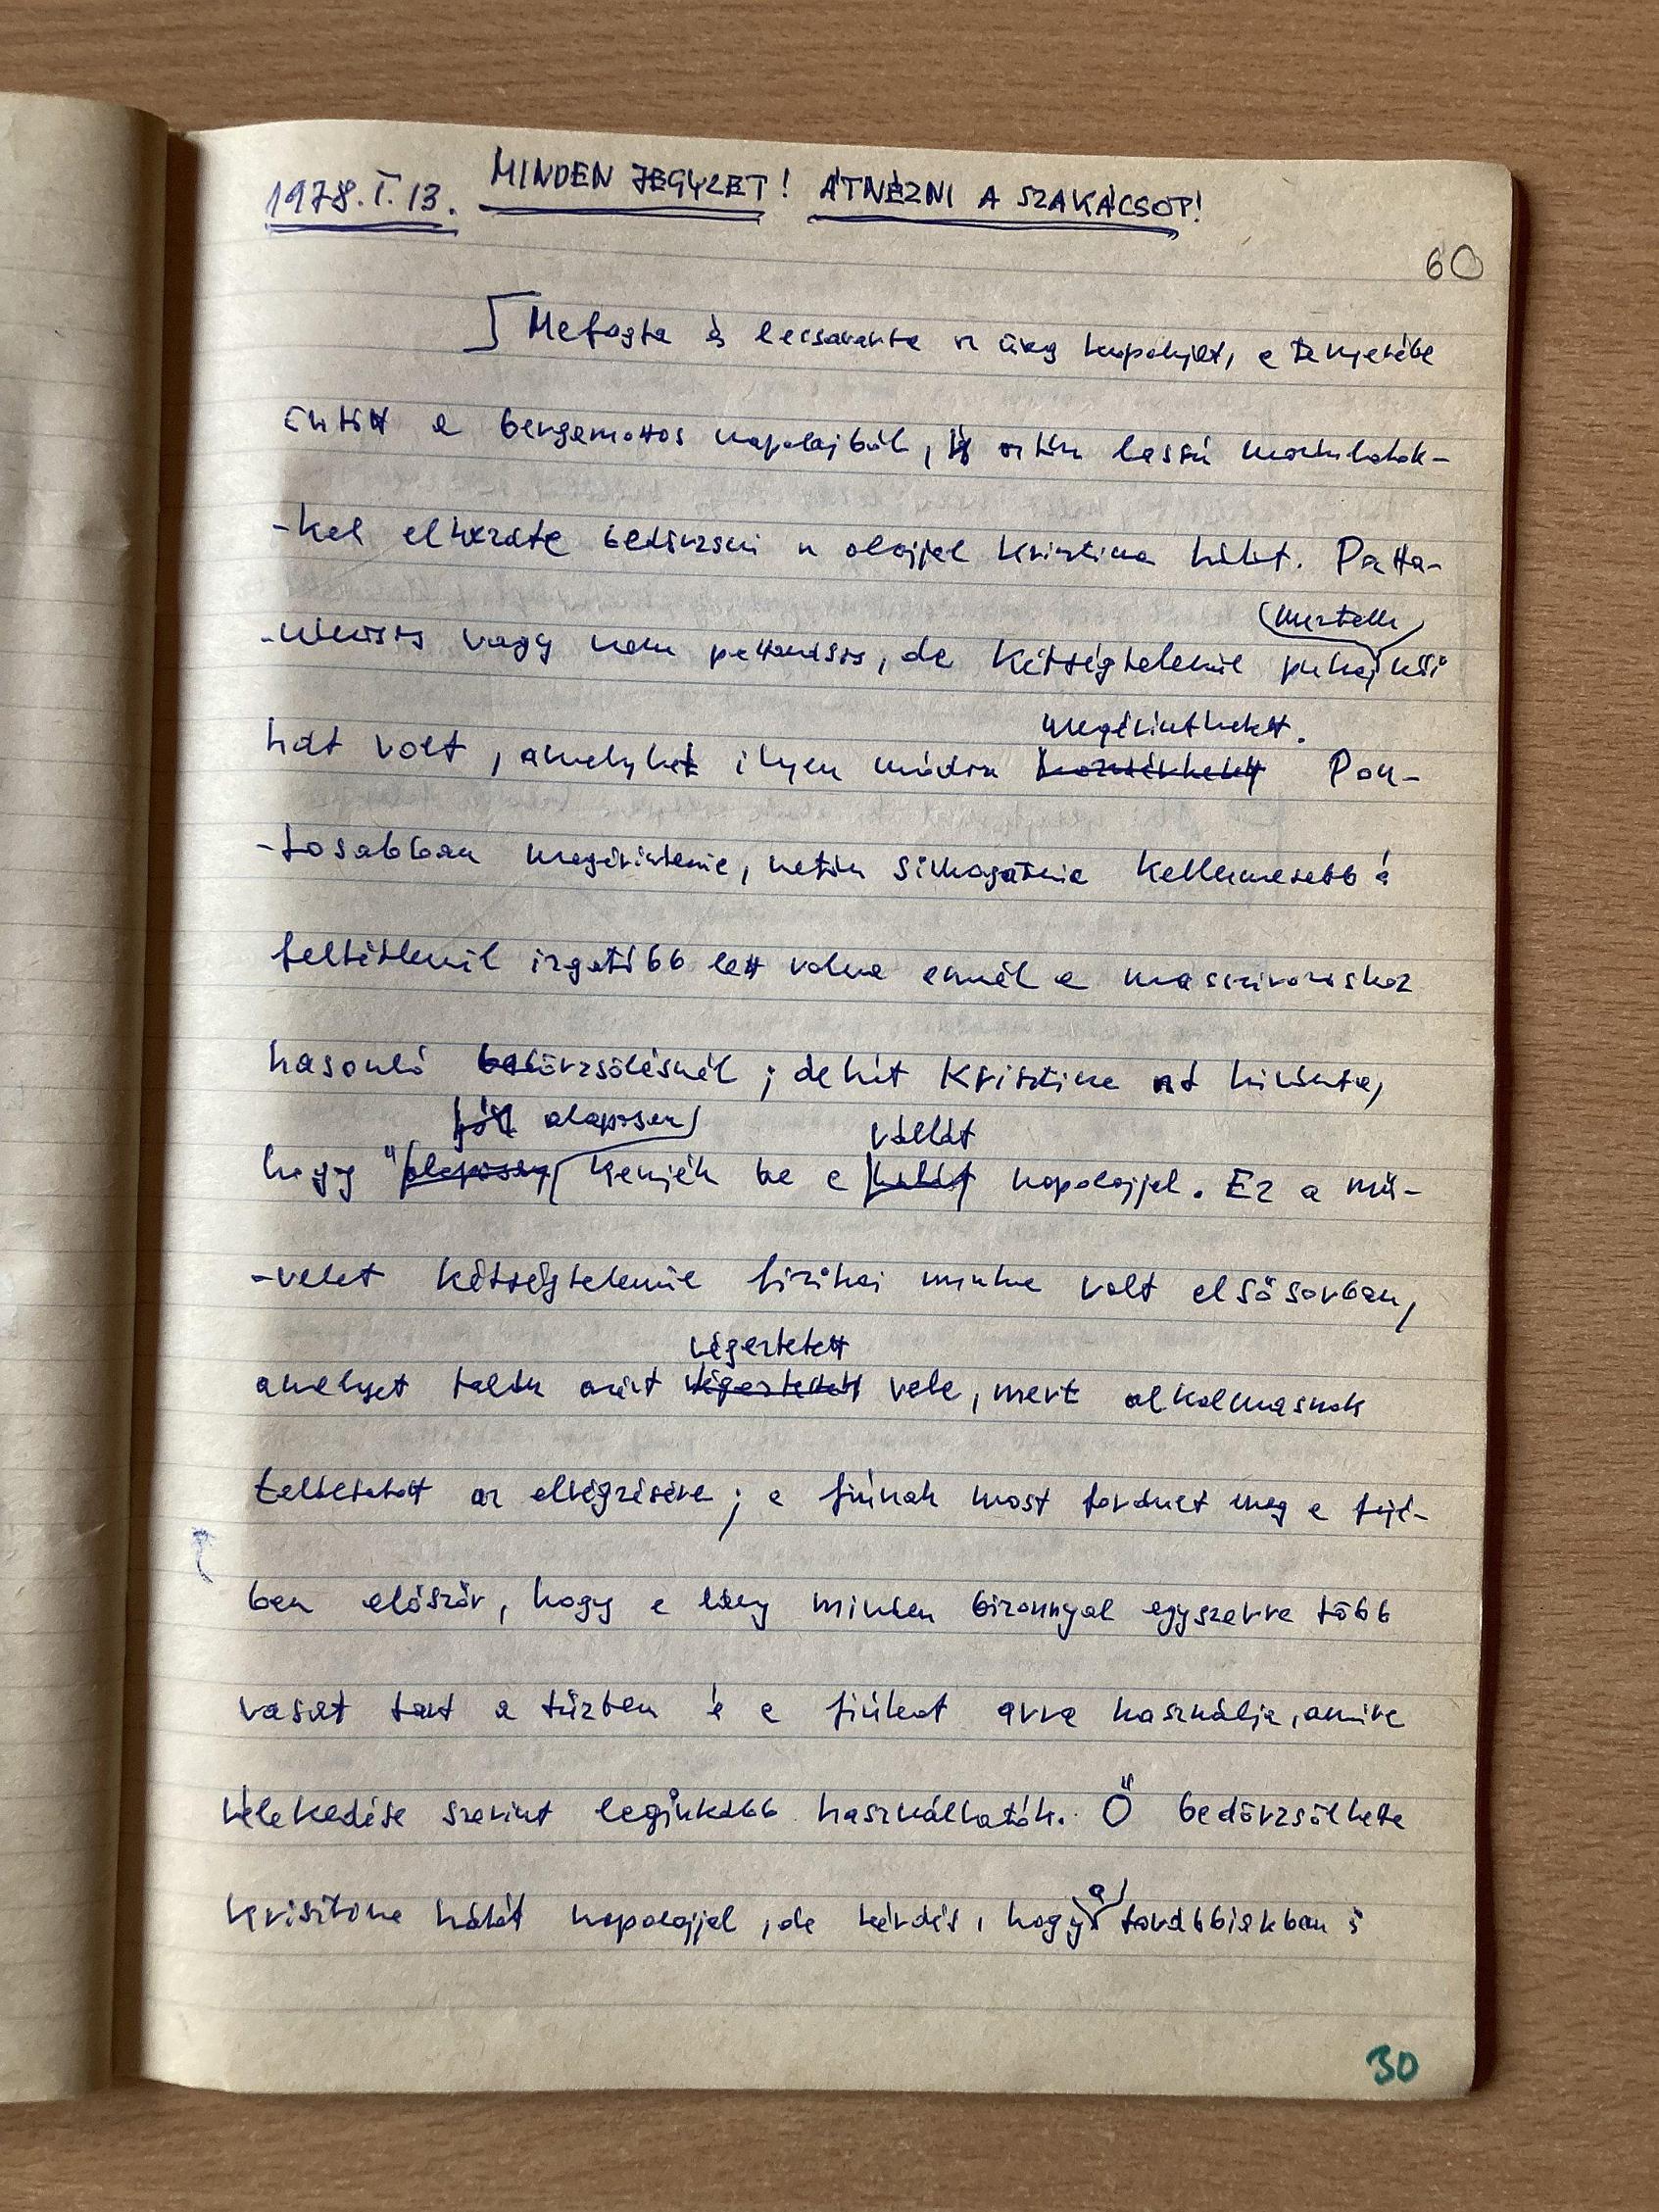 1978. I. 13. MINDEN JEGYZET! ÁTNÉZNI A SZAKÁCSOT!
60
Mefogta és lecsavarta az üveg kupakját, a tenyerébe
öntött a bergamottos napolajból, és aztán lassú mozdulatok-
-kal elkezdte bedörzsölni az olajjal Krisztina hátát. Patta-
-násos vagy nem pattanásos, de kétségtelenül puha, női
(meztelen)
hát volt, amelyhez ilyen módon hozzáérhetett Pon-
megérinthetett.
-tosabban megérintenie, netán simogatnia kellemesebb és
feltétlenül izgatóbb lett volna ennél a masszírozáshoz
hasonló bedörzsölésnél; dehát Krisztina azt kívánta,
jól alaposan
hogy "alaposan kenjék be a hátát napolajjal. Ez a mű-
vállát
-velet kétségtelenül fizikai munka volt elsősorban,
végeztetett
amelyet talán azért végeztetett vele, mert alkalmasnak
találtatott az elvégzésére; a fiúnak most fordult meg a fejé-
ben először, hogy a lány minden bizonnyal egyszerre több
vasat tart a tűzben és a fiúkat arra használja, amire
vélekedése szerint leginkább használhatók. Ő bedörzsölhette
Krisztina hátát napolajjal, de kérdés, hogy a továbbiakban is
30